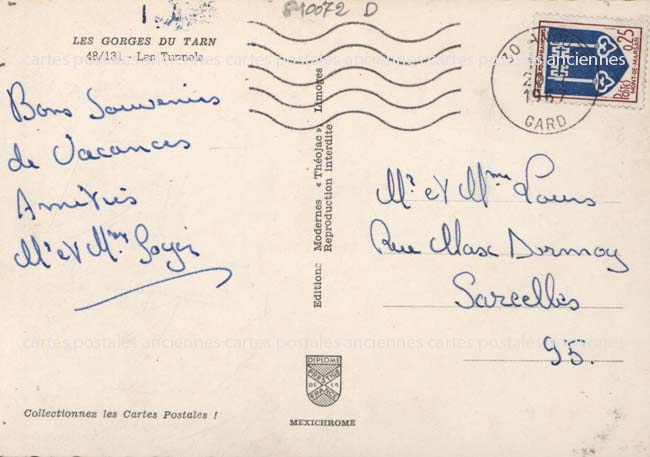 840072 D
LES GORGES DU TARN
48/131 - Les Tunnels
Bons Souvenirs
de Vacances
Amitiés
Mr et Mme
Editions Modernes « Théojac » Limoges
Reproduction interdite
30
1967
GARD
POSTE
0,25
MONT-DE-MARSAN
Mr et Mme Louis
Rue Max Dormoy
Sarcelles
95.
cartes postales anciennes cartes postales anciennes cartes postales anciennes
cartes postales anciennes cartes postales anciennes cartes postales anciennes
DIPLOME
PRESTIGE
DE LA
FRANCE
MEXICHROME
Collectionnez les Cartes Postales !